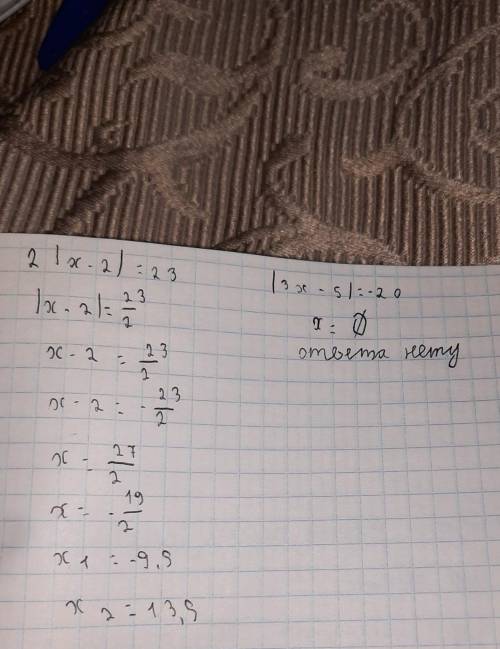 2 |x - 2| = 23
|x - 2| = 23/2
x - 2 = 23/2
x - 2 = - 23/2
x = 27/2
x = - 19/2
x1 = -9,5
x2 = 13,5
|3x - 5| = -20
x = ∅
ответа нету